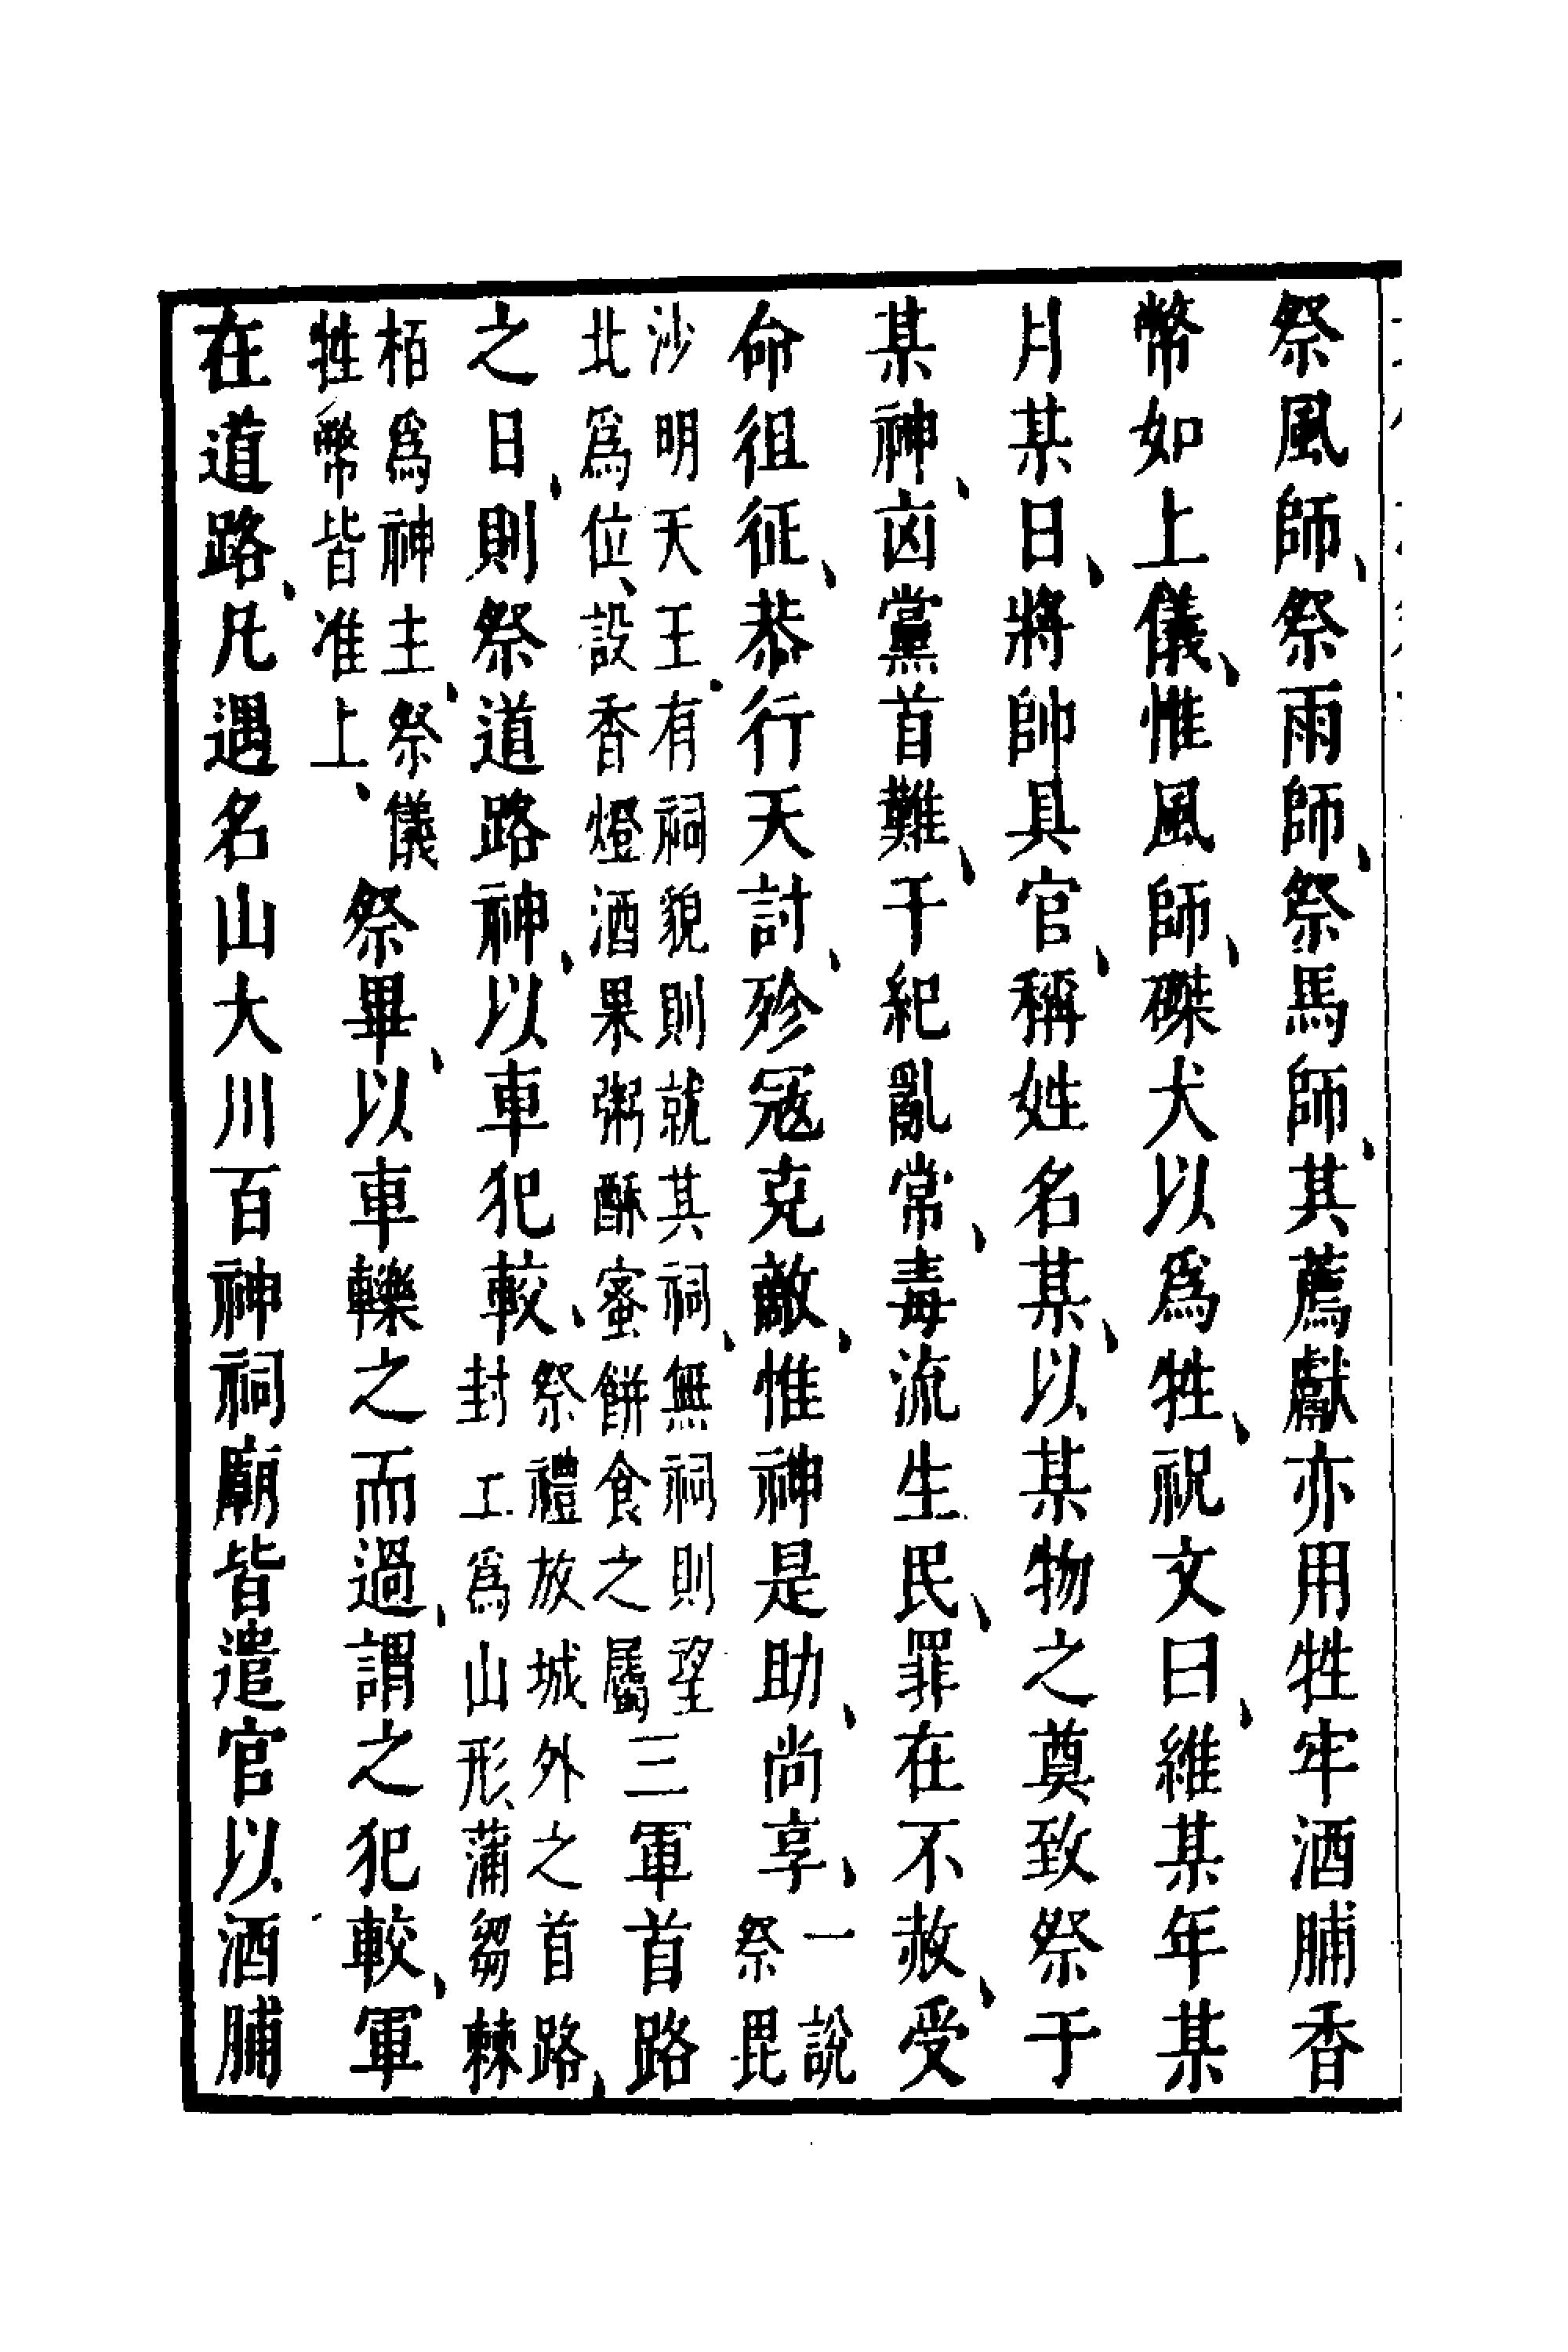 祭風師、祭雨師、祭馬師、其薦獻亦用牲牢酒脯香
幣如上儀、惟風師、磔犬以爲牲、祝文曰、維某年某
月某日、將帥具官、稱姓名某、以某物之奠致祭于
某神、凶黨首難、干紀亂常、毒流生民、罪在不赦、受
命徂征、恭行天討、殄冦克敵、惟神是助、尚享、一說
祭毘
沙明天王、有祠貌則就其祠、無祠則望
北爲位、設香燈酒果粥酥蜜餅食之屬三軍首路
之日、則祭道路神、以車犯較、祭禮放城外之首路、
封工爲山形、蒲芻棘
栢爲神主、祭儀
牲幣皆准上、祭畢、以車轢之而過、謂之犯較、軍
在道路、凡遇名山大川百神祠廟皆遣官以酒脯